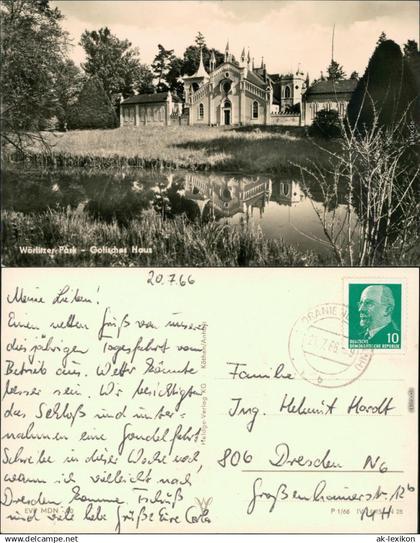 Wörlitzer Park - Gotisches Haus
20.7.66
Meine Lieben!
Einen netten Gruß von unserer
diesjährigen Tagesfahrt vom
Betrieb aus. Wetter könnte
besser sein. Wir besichtigten
das Schloß und unter-
nahmen eine Gondelfahrt
Schreibe in diese Woche noch,
wann ich vielleicht nach
Dresden komme. Tschüß
und viele liebe Grüße Eure
EVP MDN
Meloga-Verlag KG Köthen/Anhalt
ORANIEN
21.7.66
b
10
DEUTSCHE
DEMOKRATISCHE REPUBLIK
Familie
Ing. Helmut Hardt
806 Dresden N6
Großenhainerstr. 12b
P 1/66 IV
www.ak-lexikon.de
© ak-lexikon